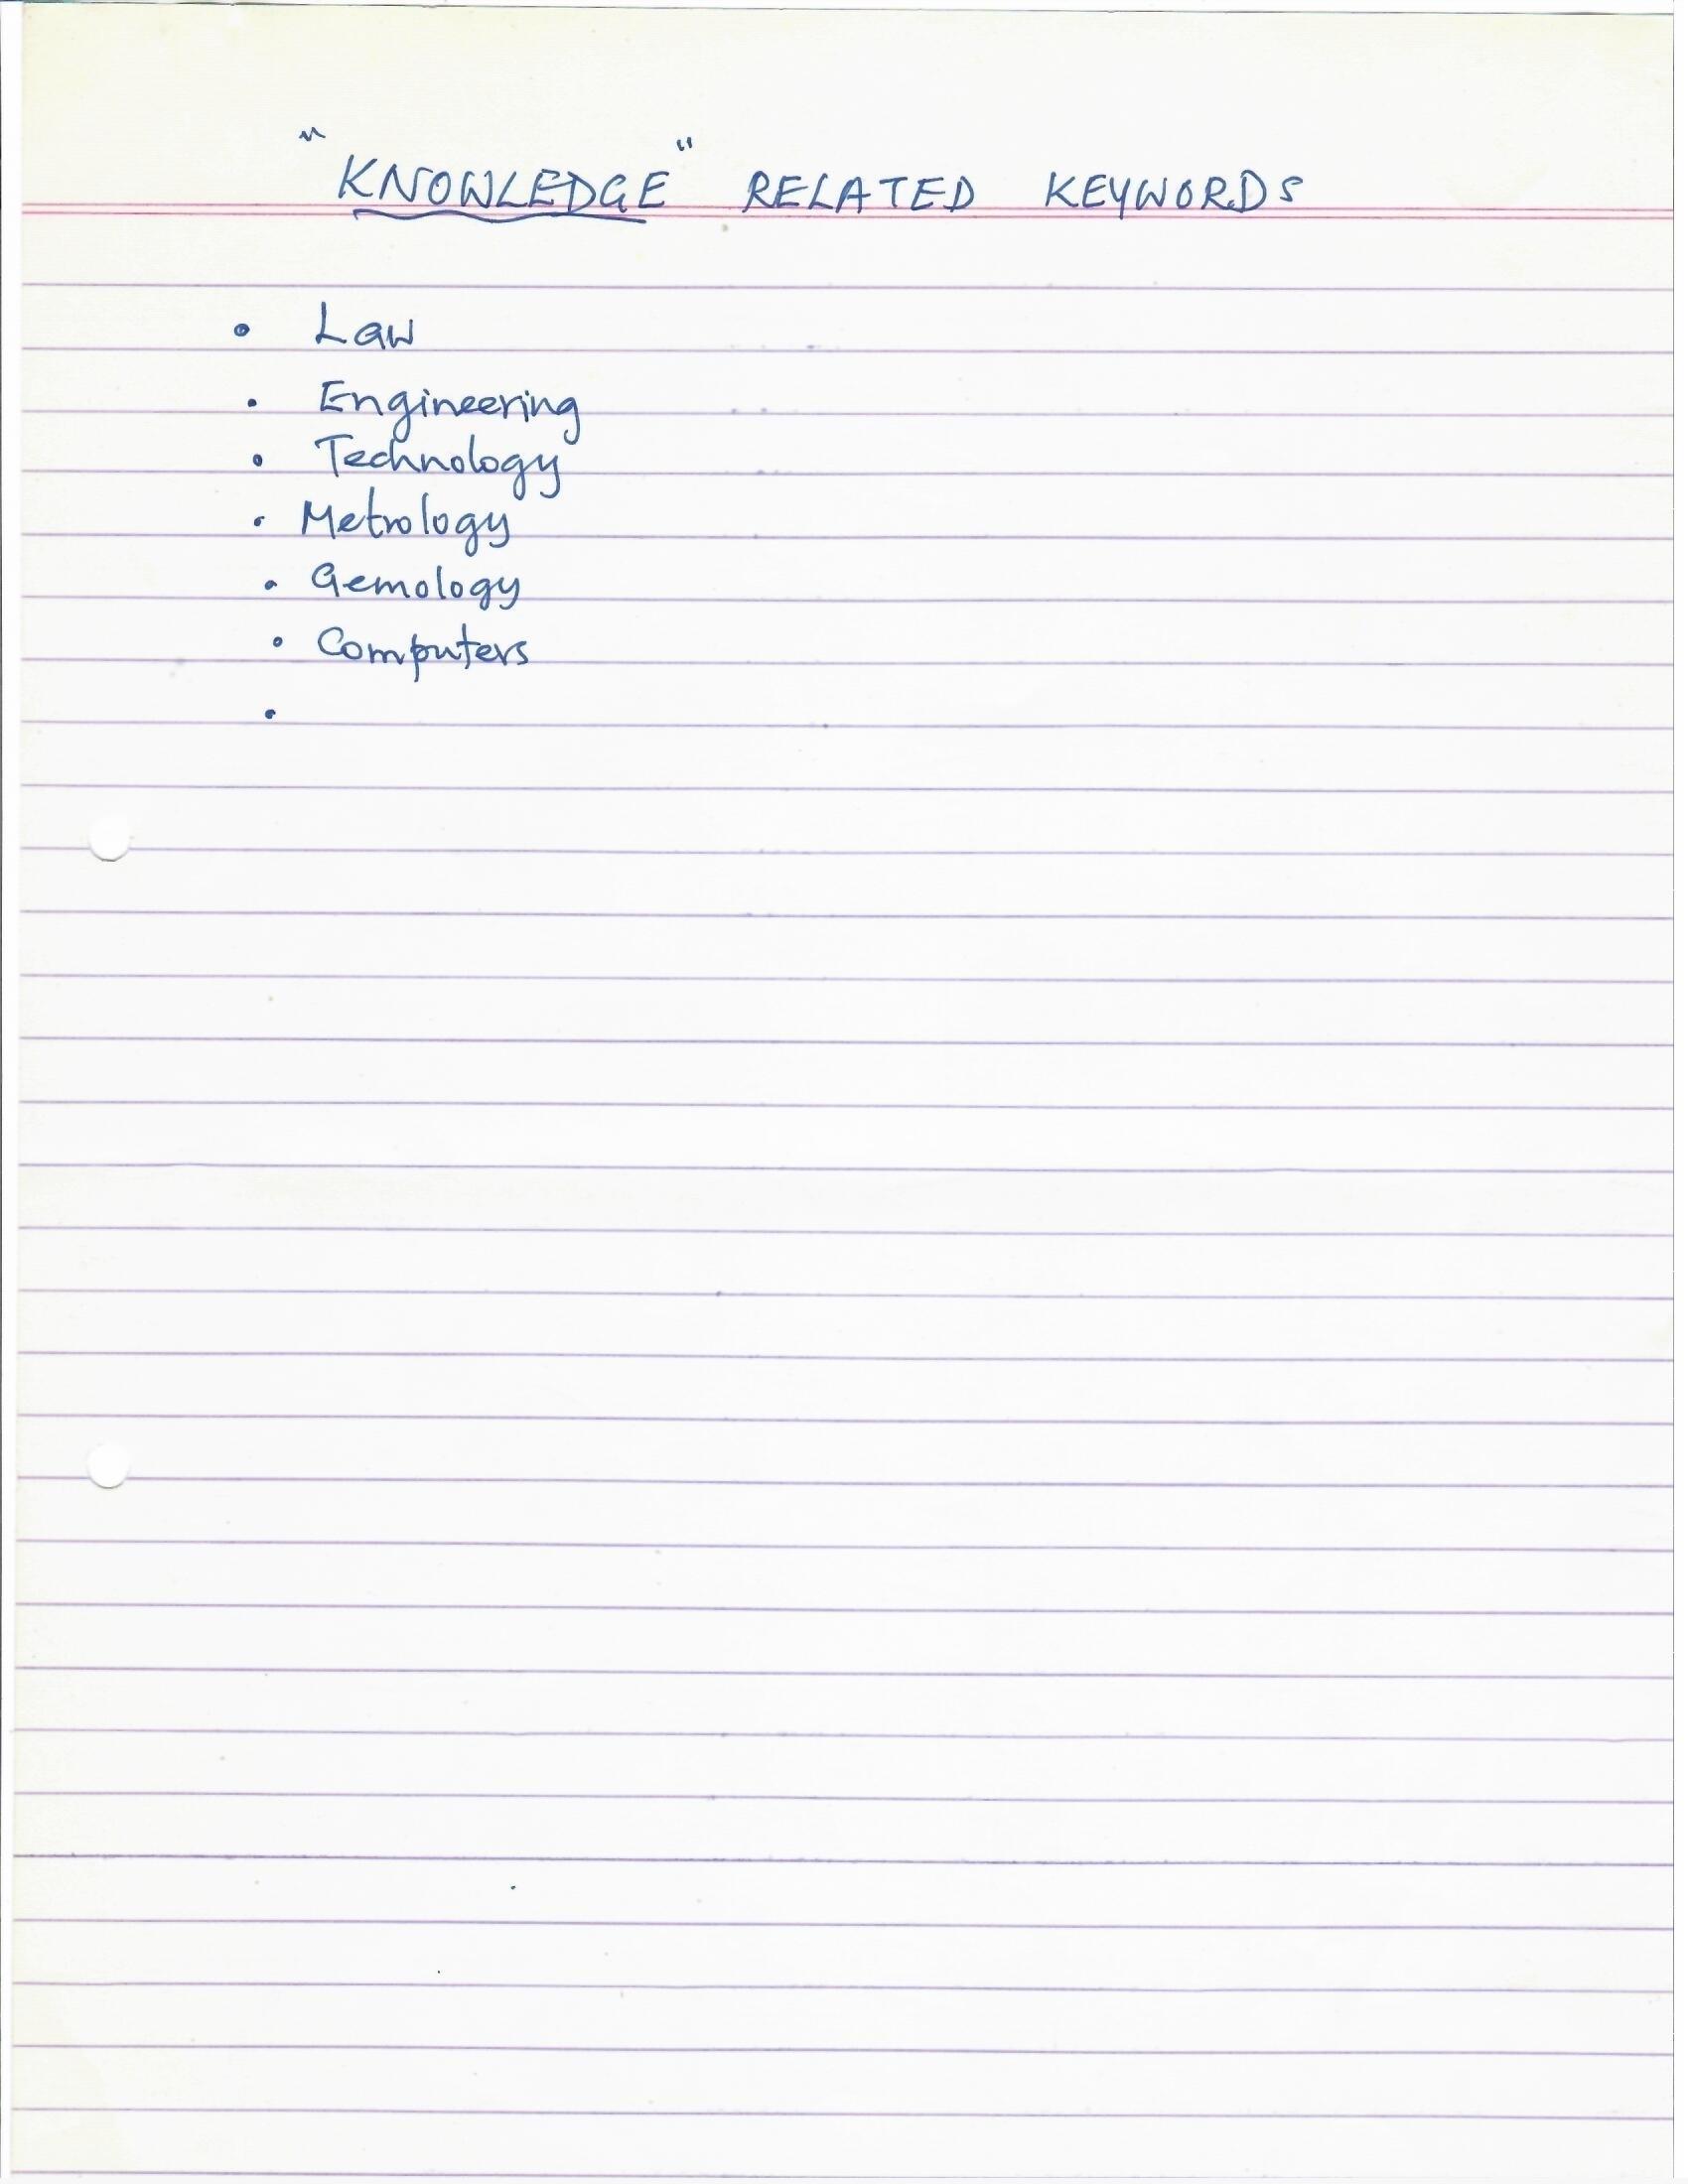 "KNOWLEDGE" RELATED KEYWORDS
• Law
• Engineering
• Technology
• Metrology
• Gemology
• Computers
•